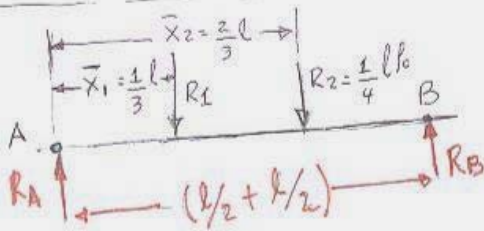 x̄2 = 2/3 l
x̄1 = 1/3 l
R1
R2 = 1/4 l P0
A
B
RA
(l/2 + l/2)
RB